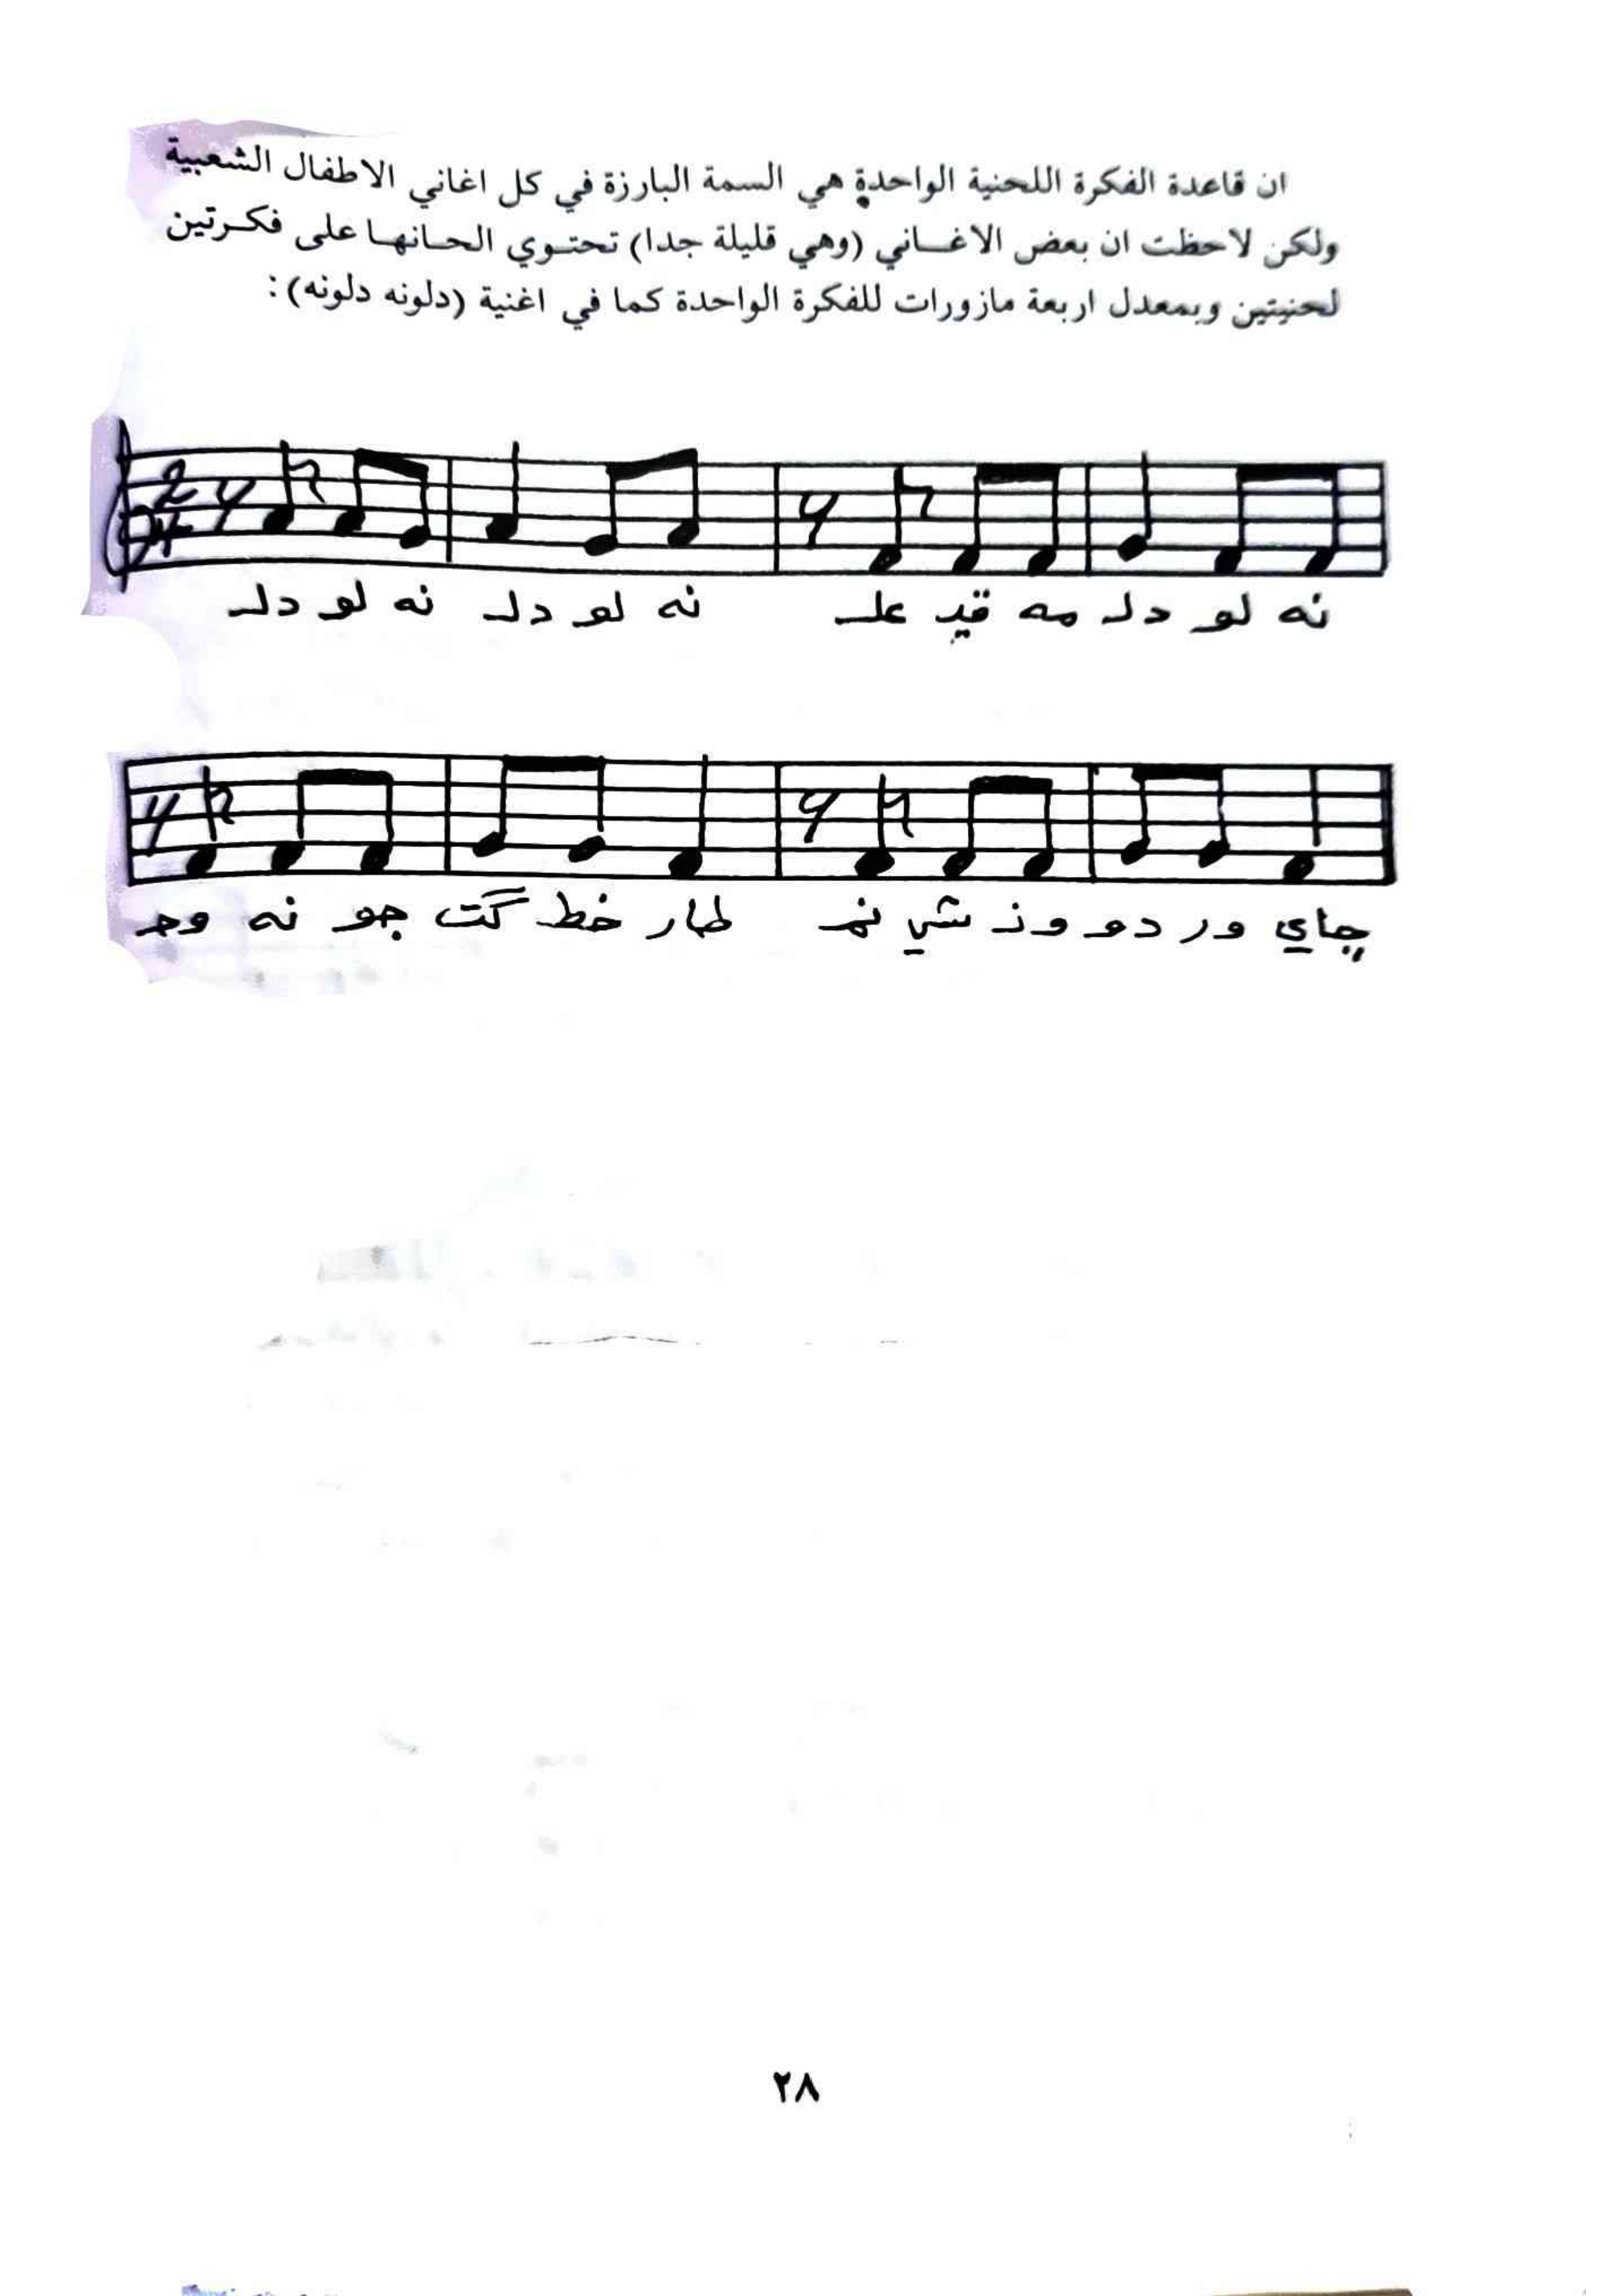 ان قاعدة الفكرة اللحنية الواحدة هي السمة البارزة في كل اغاني الاطفال الشعبية
ولكن لاحظت ان بعض الاغـــاني (وهي قليلة جدا) تحتـوي الحـانهـا على فكـرتين
لحنيتين وبمعدل اربعة مازورات للفكرة الواحدة كما في اغنية (دلونه دلونه) :
2
4
دلـ لو نه دلـ لو نه علـ قيد مه دلـ لو نه
وحـ نه جو گت خط طار نمـ شي وز دو ور چاي
٢٨